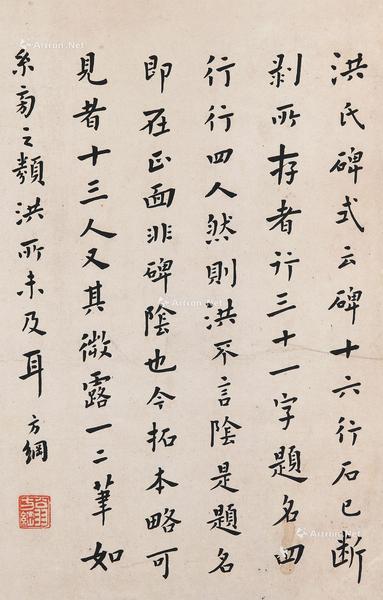 洪氏碑式云碑十六行石已断
剥所存者行三十一字題名四
行行四人然則洪不言陰是題名
即在正面非碑陰也今拓本略可
見者十三人又其微露一二筆如
糸旁之類洪所未及耳 方綱
翁方綱
Artron.Net
Artron.Net
Artron.Net
Artron.Net
Artron.Net